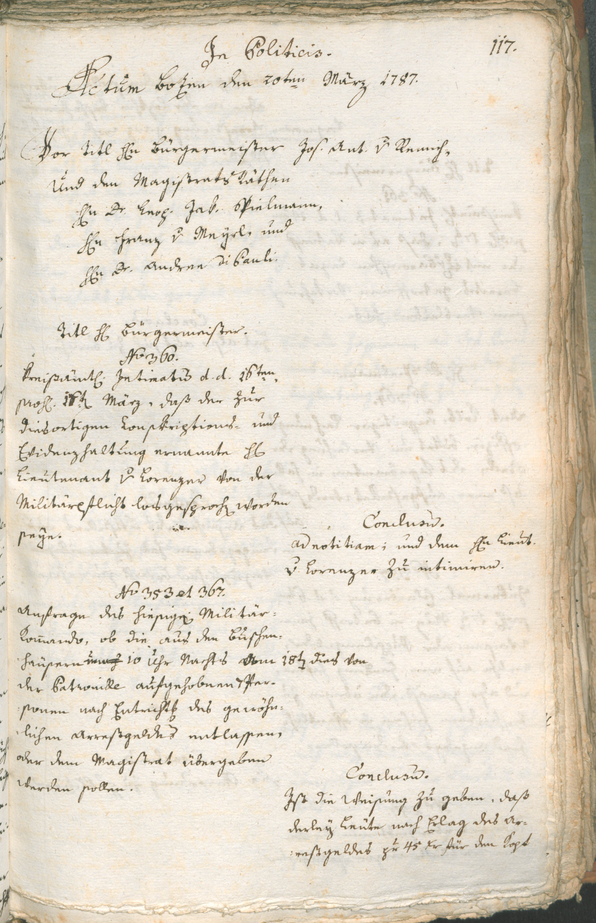 117.
In Politicis.
Actum Botzen den 20ten März 1787.
Vor Titl Hn Bürgermeister Jos. Ant. v Remich,
Und den Magistrats Räthen
Hn Dr. Leop. Jak. Spielmann,
Hn Franz v Mayrl, und
Hn Dr. Andree Di Pauli.
Titl H Bürgermeister.
No 360.
Kreisämtl Intimatus d. d. 16ten,
März, daß der zur
diesortigen Konskriptions- und
Evidenzhaltung ernannte H
Lieutenant v Lorenzer von der
Militärpflicht losgesproch worden
seye.
Conclusū.
ad notitiam; und dem Hn Lieut.
v Lorenzer zu intimiren.
No 353 et 367.
Anfrage des hiesigen Militär-
Kommando, ob die aus den Buschen-
häusern 10 Uhr Nachts vom 18t dies von
der Patroulle aufgehobnen Per-
sonen nach Entricht des gewöhn-
lichen Arrestgeldes entlassen,
oder dem Magistrat übergeben
werden sollen.
Conclusū.
Ist die Weisung zu geben, daß
derley Leute nach Erlag des Ar-
restgeldes zu 45 kr für den Kopf